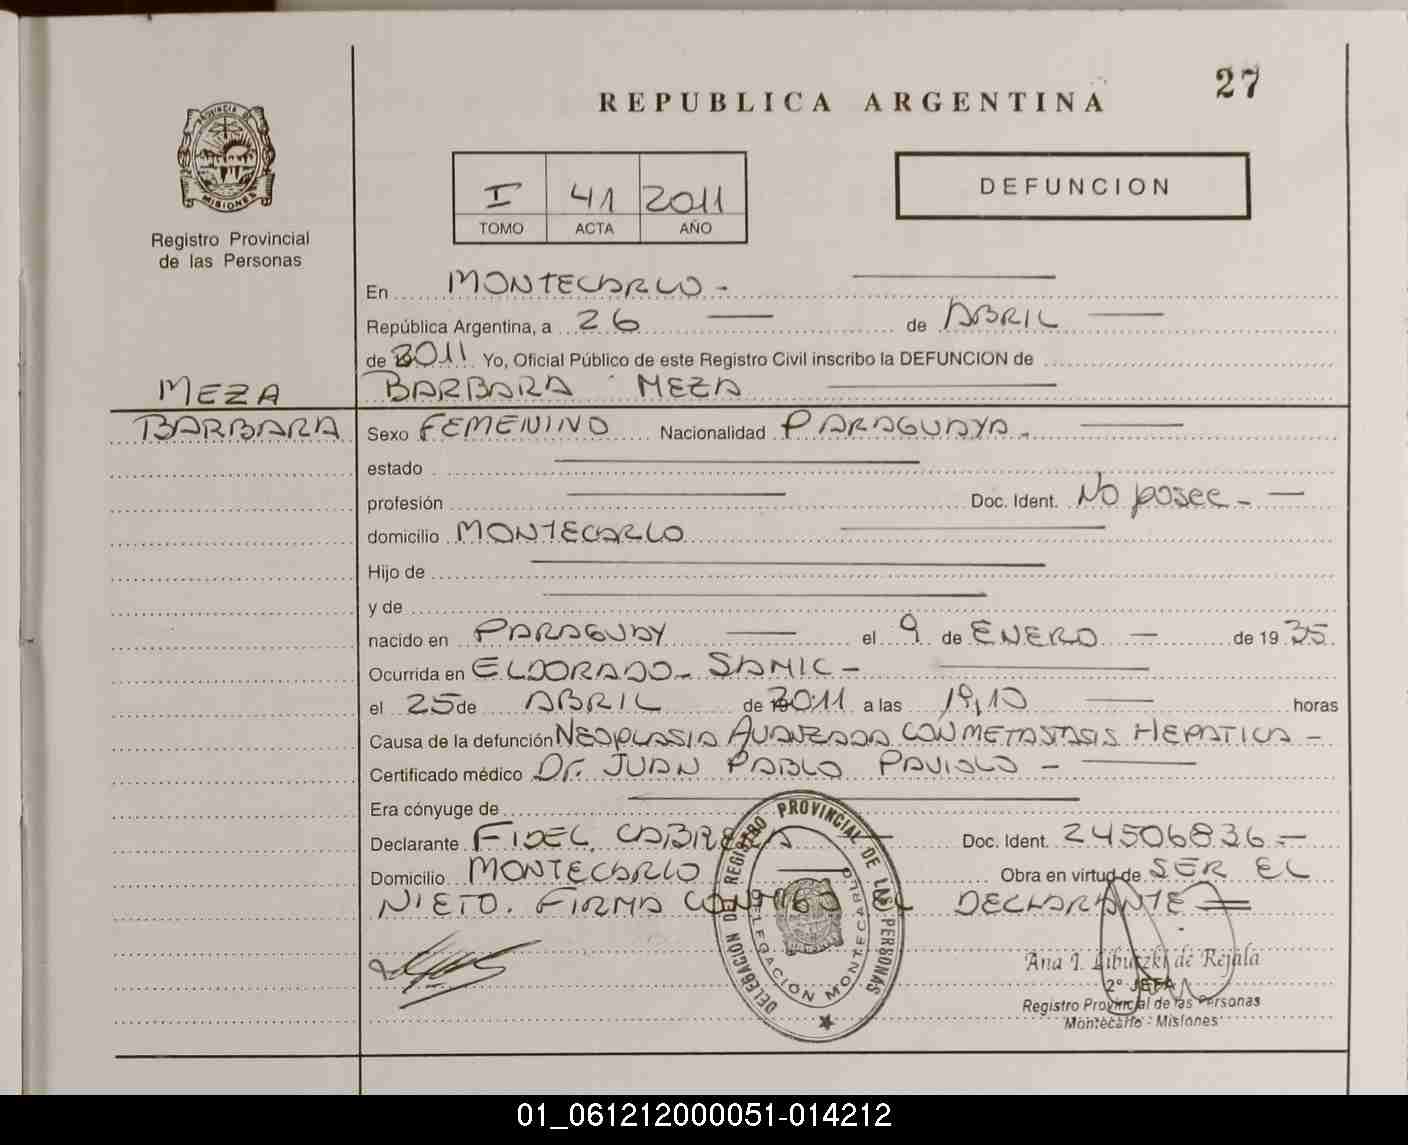 27
REPUBLICA ARGENTINA
PROVINCIA DE
MISIONES
Registro Provincial
de las Personas
I 41 2011
TOMO ACTA AÑO
DEFUNCION
En MONTECARLO -
República Argentina, a 26 de ABRIL
de 2011 Yo, Oficial Público de este Registro Civil inscribo la DEFUNCION de
MEZA BARBARA MEZA
BARBARA Sexo FEMENINO Nacionalidad PARAGUAYA.
estado
profesión Doc. Ident. No posee -
domicilio MONTECARLO
Hijo de
y de
nacido en PARAGUAY el 9 de ENERO de 19 35
Ocurrida en ELDORADO - SAMIC -
el 25 de ABRIL de 2011 a las 19,10 horas
Causa de la defunción NEOPLASIA AVANZADA CON METASTASIS HEPATICA -
Certificado médico Dr. JUAN PABLO PAVIOLO -
Era cónyuge de
Declarante FIDEL CABRERA Doc. Ident. 24506836 -
Domicilio MONTECARLO Obra en virtud de SER EL
NIETO. FIRMA CONMIGO EL DECLARANTE
DELEGACION DEL REGISTRO PROVINCIAL DE LAS PERSONAS
DELEGACION MONTECARLO
Ana I. Libutzki de Rejala
2° JEFA
Registro Provincial de las Personas
Montecarlo - Misiones
01_061212000051-014212